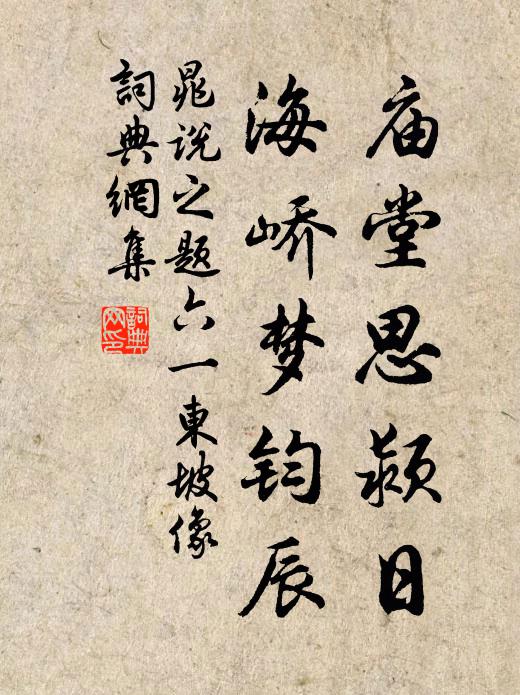 庙堂思颍日
海峤梦钧辰
晁说之题六一東坡像
詞典網集
詞典网印